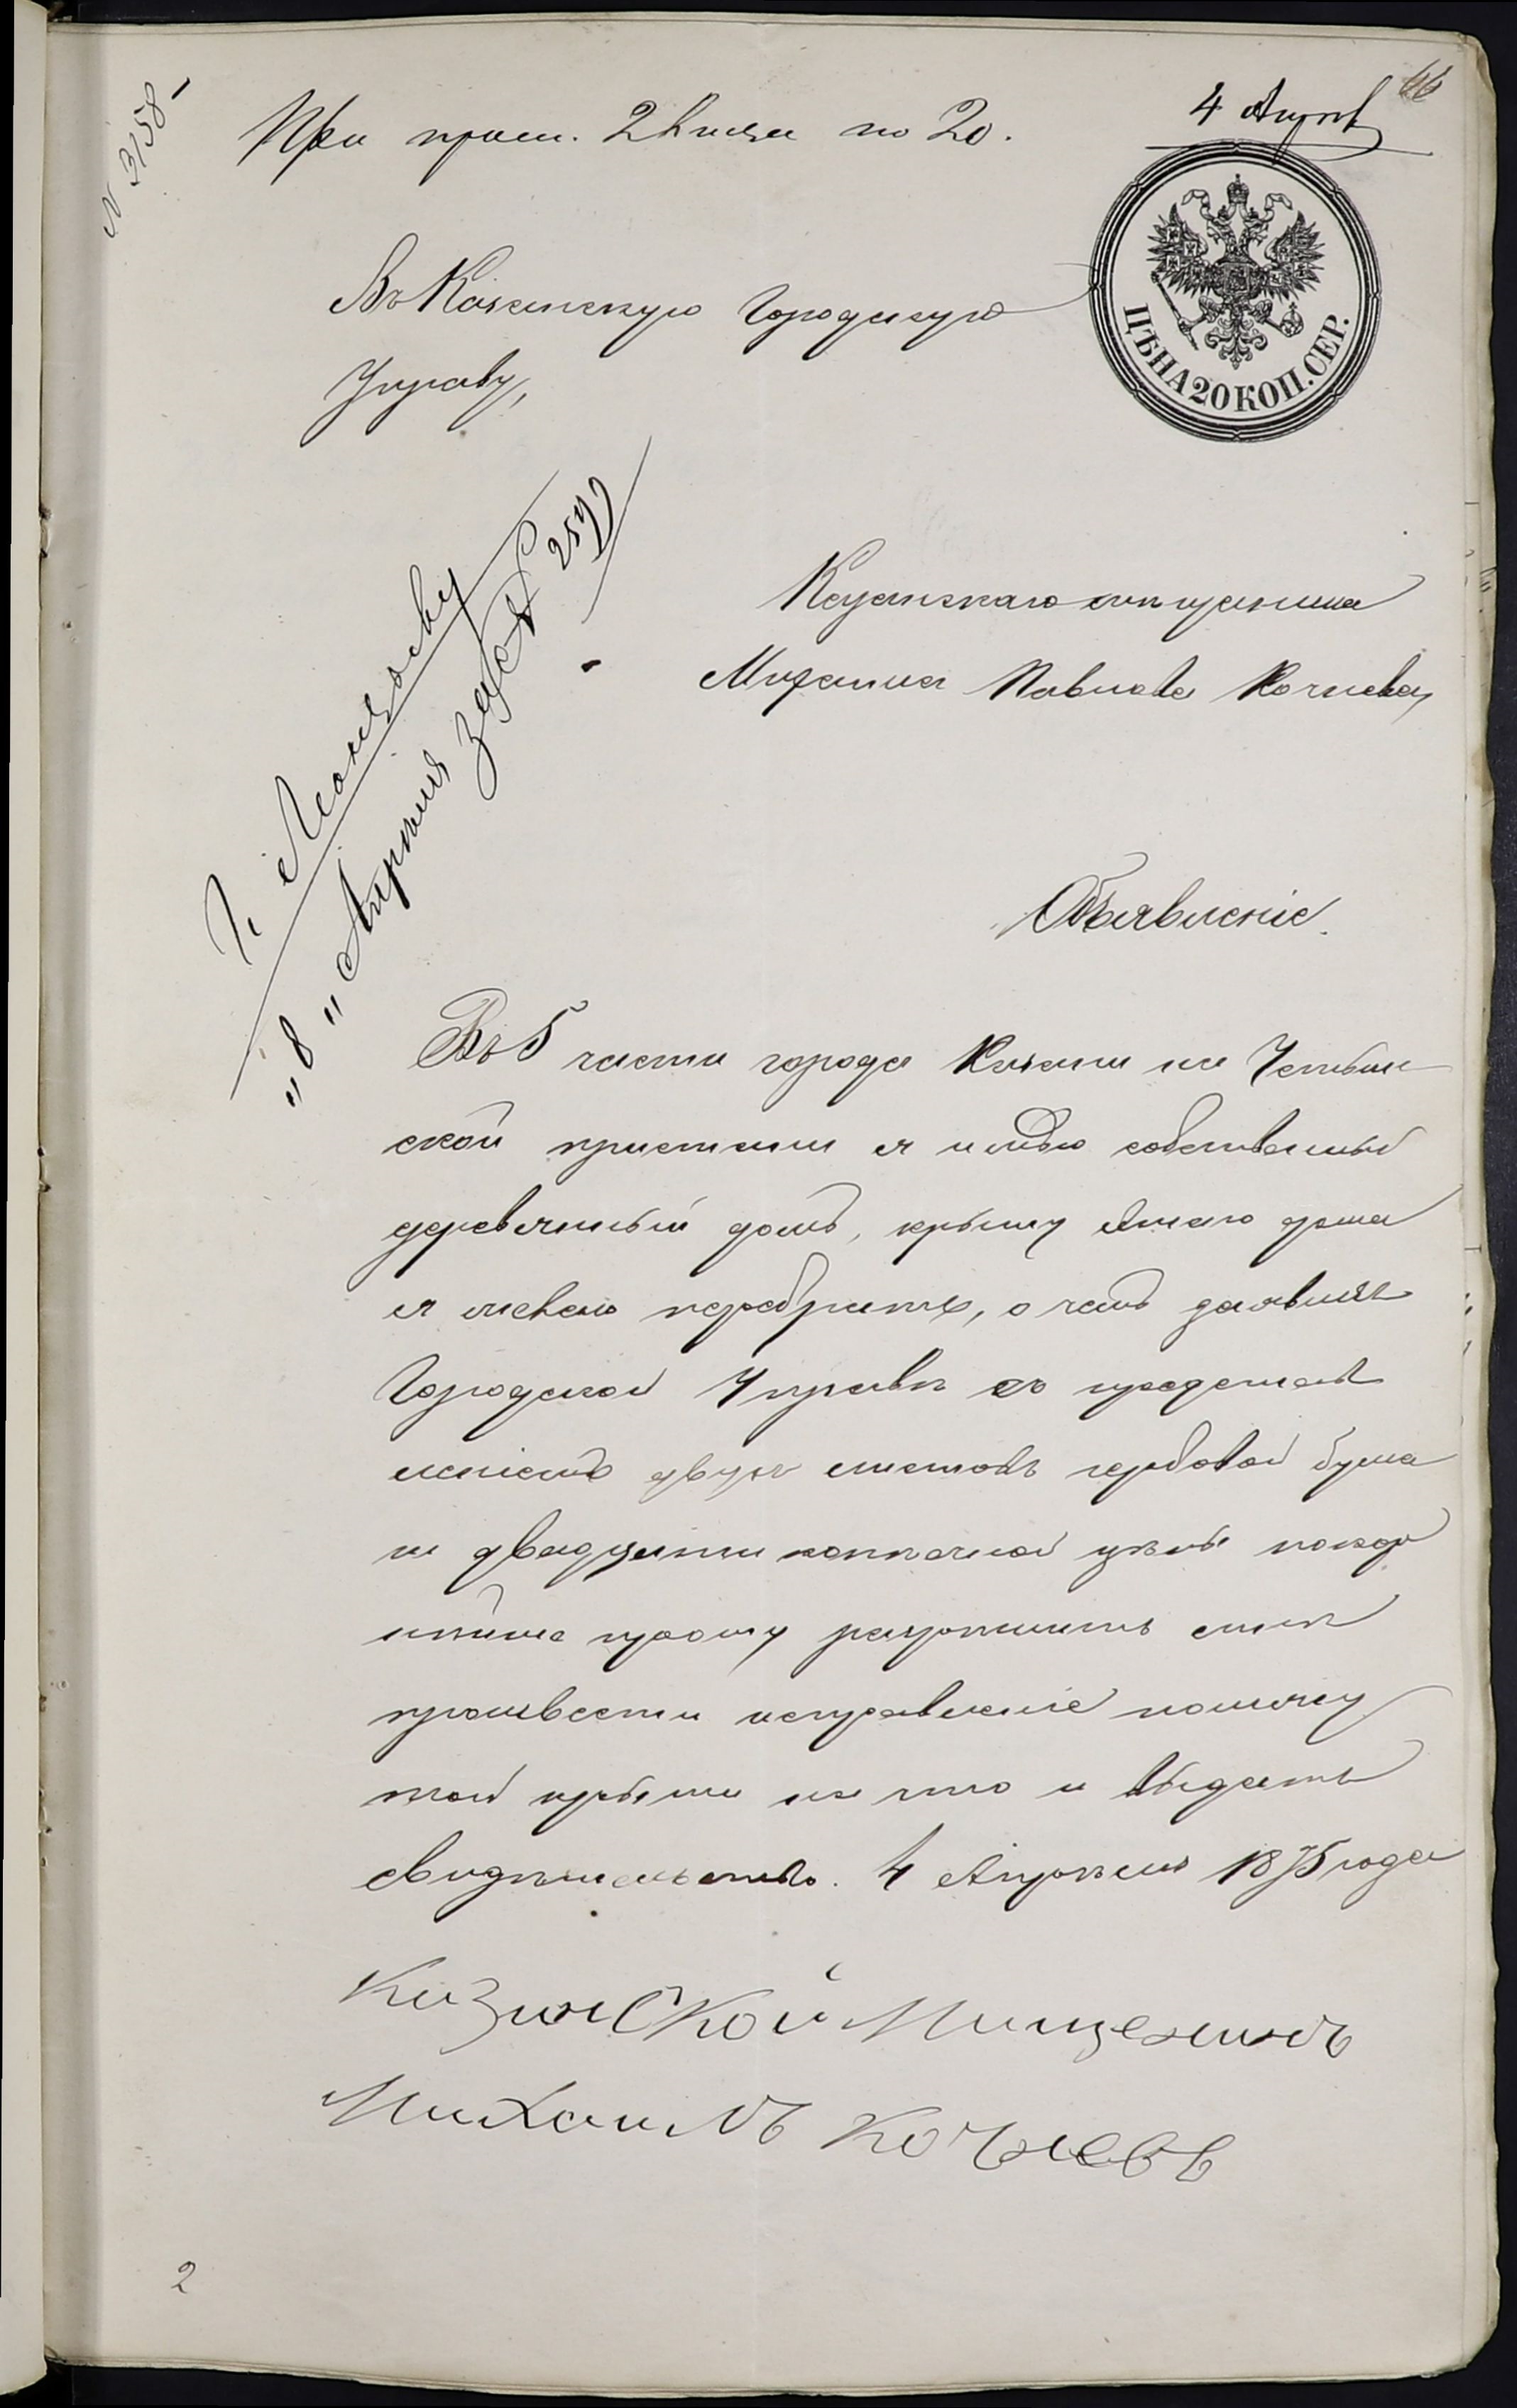 66
4 Апрѣл
№ 3158
При прош. 2 листа по 20.
ЦѢНА 20 КОП. СЕР.
Въ Казанскую Городскую
Управу,
Г. Леонтьеву
"8" Апрѣля
Казанскаго мѣщанина
Михаила Павлова Кочнева,
Объявленіе.
Въ 5 части города Казани на Устьин
ской пристани я имѣю собственный
деревянный домъ, крышу онаго дома
я желаю перебрать, о чемъ заявляя
Городской Управѣ съ представ
леніемъ двухъ листовъ гербовой бума
ги двадцати копѣечной цѣны покор
нѣйше прошу разрѣшить мнѣ
произвести исправленіе помяну
той крыши на что и выдать
свидѣтельство. 4 Апрѣля 1875 года
Казанской Мищенинъ
Михаилъ Кочневъ
2